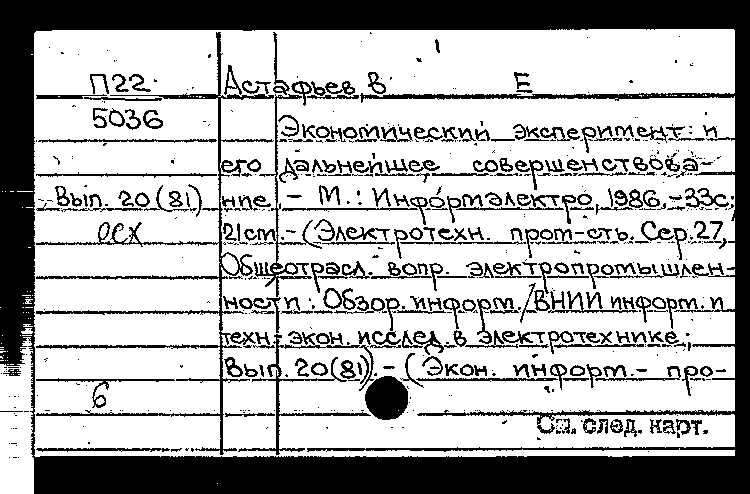 П22 Астафьев, В Е
5036 Экономический эксперимент и
его дальнейшее совершенствова-
Вып. 20(81) ние. – М.: Информэлектро, 1986. – 33с;
осх 21см. – (Электротехн. пром-сть. Сер.27,
Общеотрасл. вопр. электропромышлен-
ности: Обзор. информ. / ВНИИ информ. и
техн.-экон. исслед. в электротехнике;
Вып. 20(81)). – (Экон. информ. – про-
6
См. след. карт.